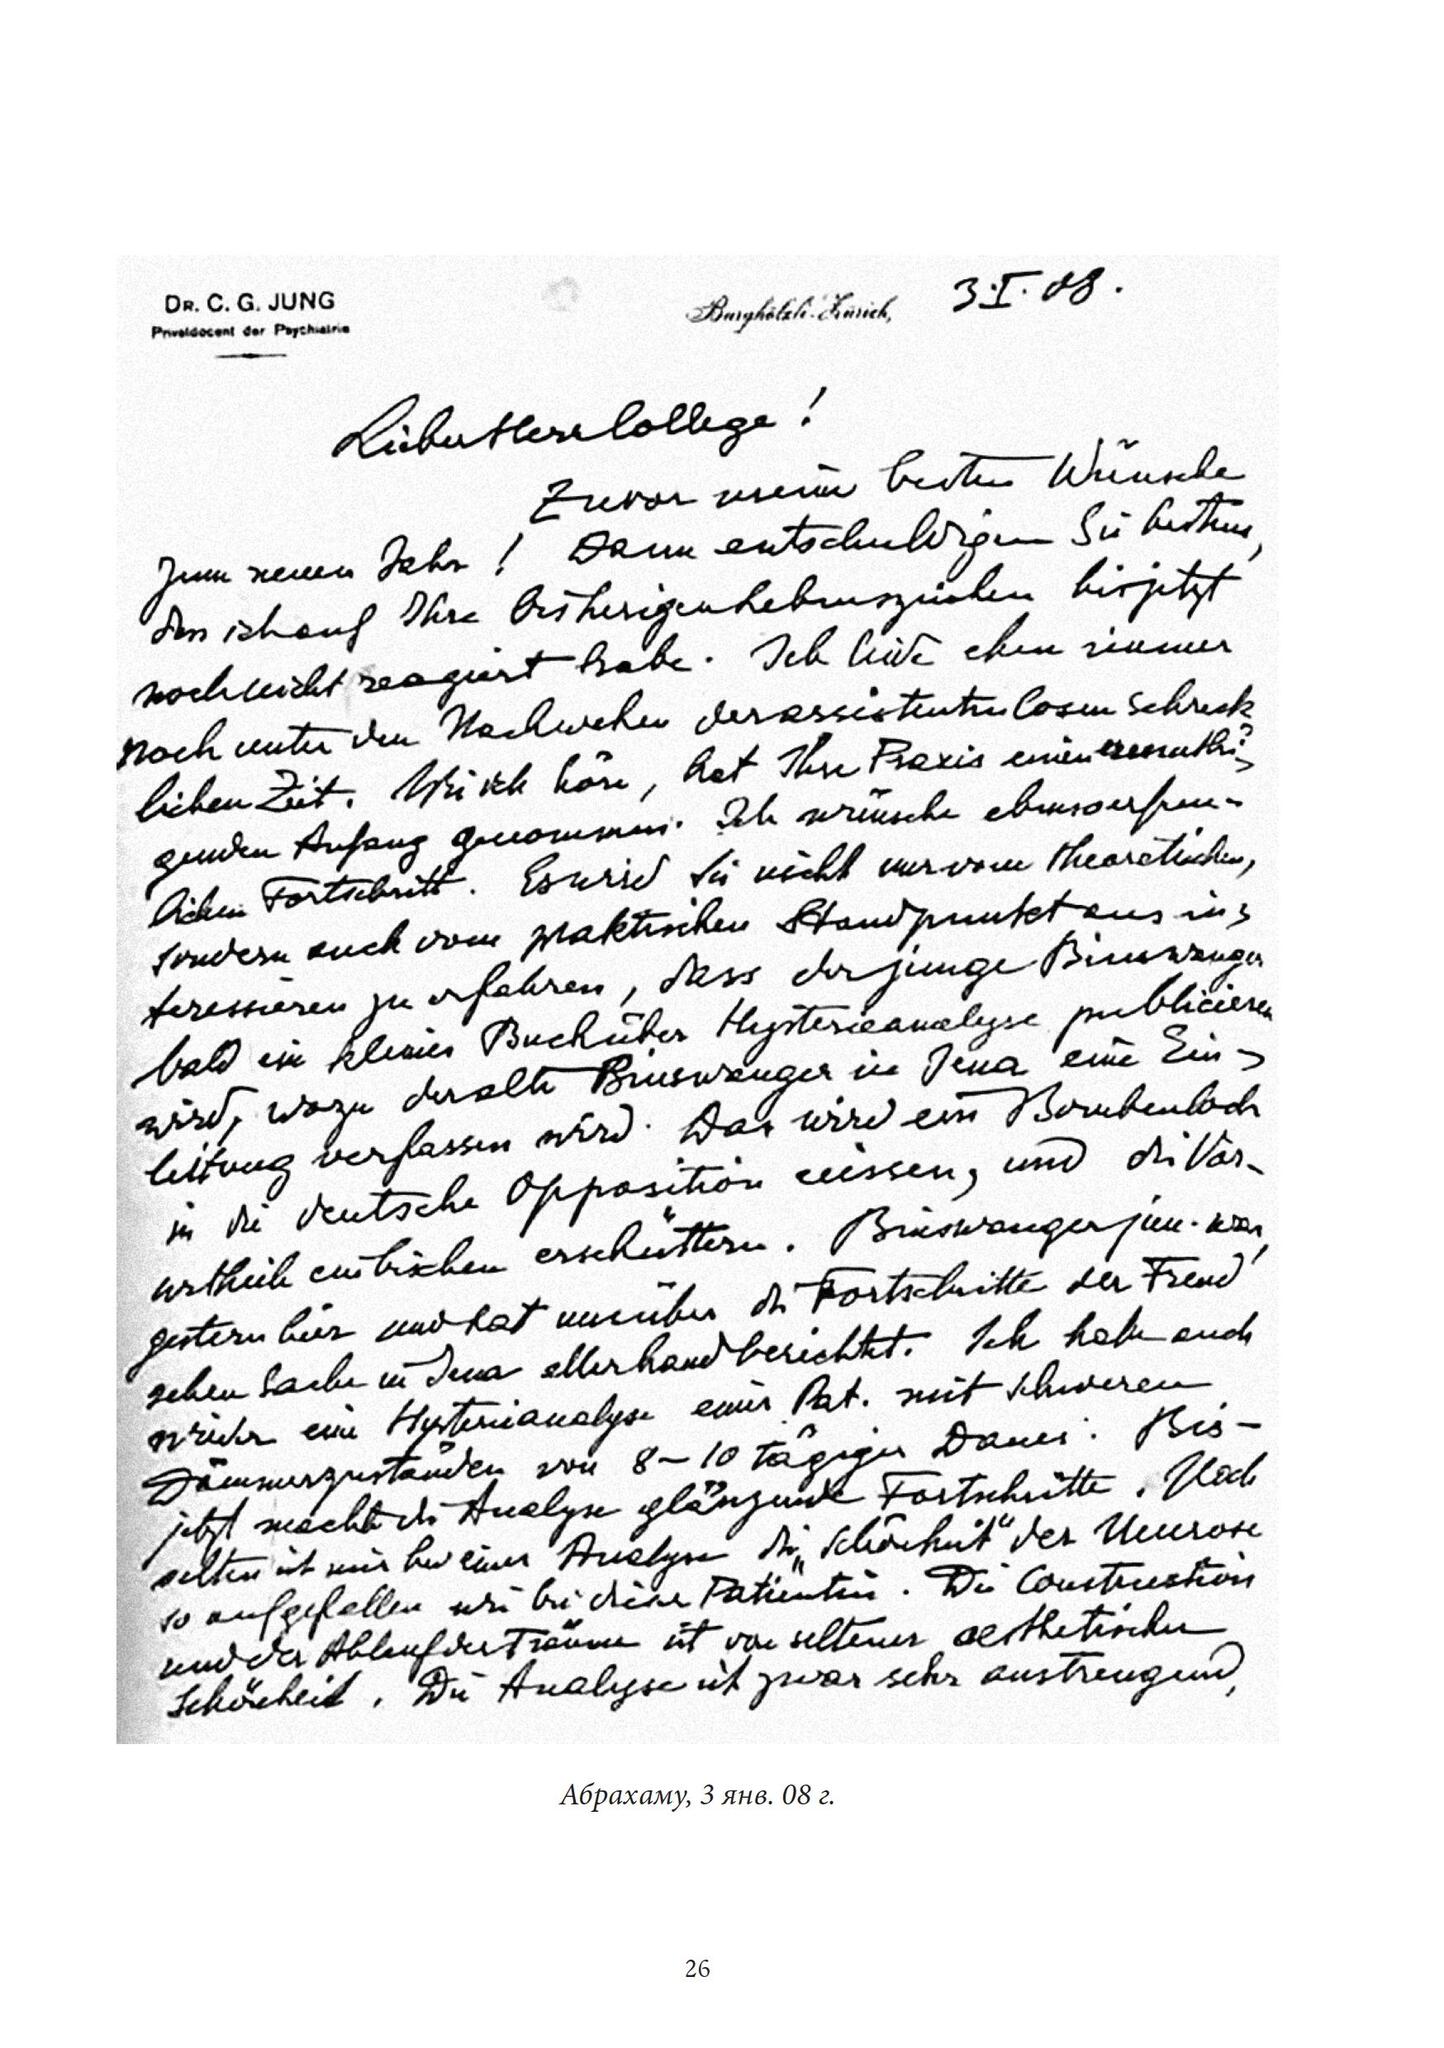 DR. C. G. JUNG
Privatdocent der Psychiatrie
Burghölzli-Zürich,
3.I.08.
Lieber Herr College!
Zuvor meine besten Wünsche
zum neuen Jahr! Dann entschuldigen Sie bestens,
dass ich auf Ihre bisherigen Lebenszeichen bis jetzt
noch nicht reagiert habe. Ich leide eben immer
noch unter den Nachwehen der assistentenlosen schreck
lichen Zeit. Wie ich höre, hat Ihre Praxis einen ermuthi-
genden Anfang genommen. Ich wünsche ebenso erfreu-
lichen Fortschritt. Es wird Sie nicht nur vom theoretischen,
sondern auch vom praktischen Standpunkt aus in-
teressieren zu erfahren, dass der junge Binswanger
bald ein kleines Buch über Hysterieanalyse publicieren
wird, wozu der alte Binswanger in Jena eine Ein-
leitung verfassen wird. Das wird ein Bombenloch
in die deutsche Opposition reissen, und die Vor-
urtheile ein bischen erschüttern. Binswanger jun. war
gestern hier und hat mir über die Fortschritte der Freud'
schen Sache in Jena allerhand berichtet. Ich habe auch
wieder eine Hysterieanalyse einer Pat. mit schweren
Dämmerzuständen von 8-10 tägiger Dauer. Bis-
jetzt macht die Analyse glänzende Fortschritte. Noch
selten ist mir bei einer Analyse die „Schönheit" der Neurose
so aufgefallen wie bei dieser Patientin. Die Construction
und der Ablauf der Träume ist von seltener aesthetischer
Schönheit. Die Analyse ist zwar sehr anstrengend,
Абрахаму, 3 янв. 08 г.
26